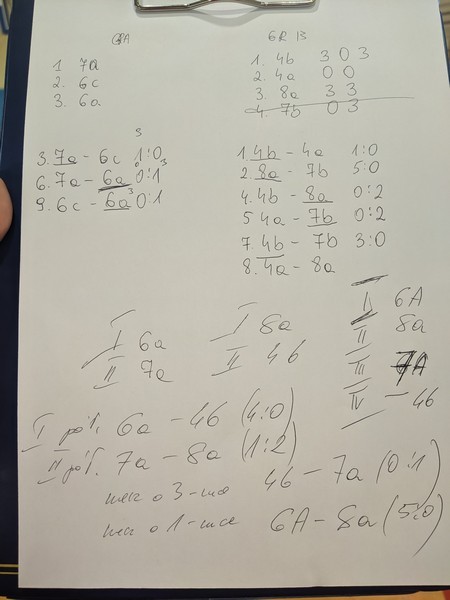 GR A
1 7a
2. 6c
3. 6a
GR B
1. 4b 3 0 3
2. 4a 0 0
3. 8a 3 3
4. 7b 0 3
3. 7a - 6c 1:0
6. 7a - 6a 0:1
9. 6c - 6a 0:1
1. 4b - 4a 1:0
2. 8a - 7b 5:0
4. 4b - 8a 0:2
5 4a - 7b 0:2
7. 4b - 7b 3:0
8. 4a - 8a
I 6a
II 7a
I 8a
II 4b
I 6A
II 8a
III 7A
IV - 4b
I pół. 6a - 4b (4:0)
II pół. 7a - 8a (1:2)
mecz o 3-cie 4b - 7a (0:1)
mecz o 1-sze 6A - 8a (5:0)